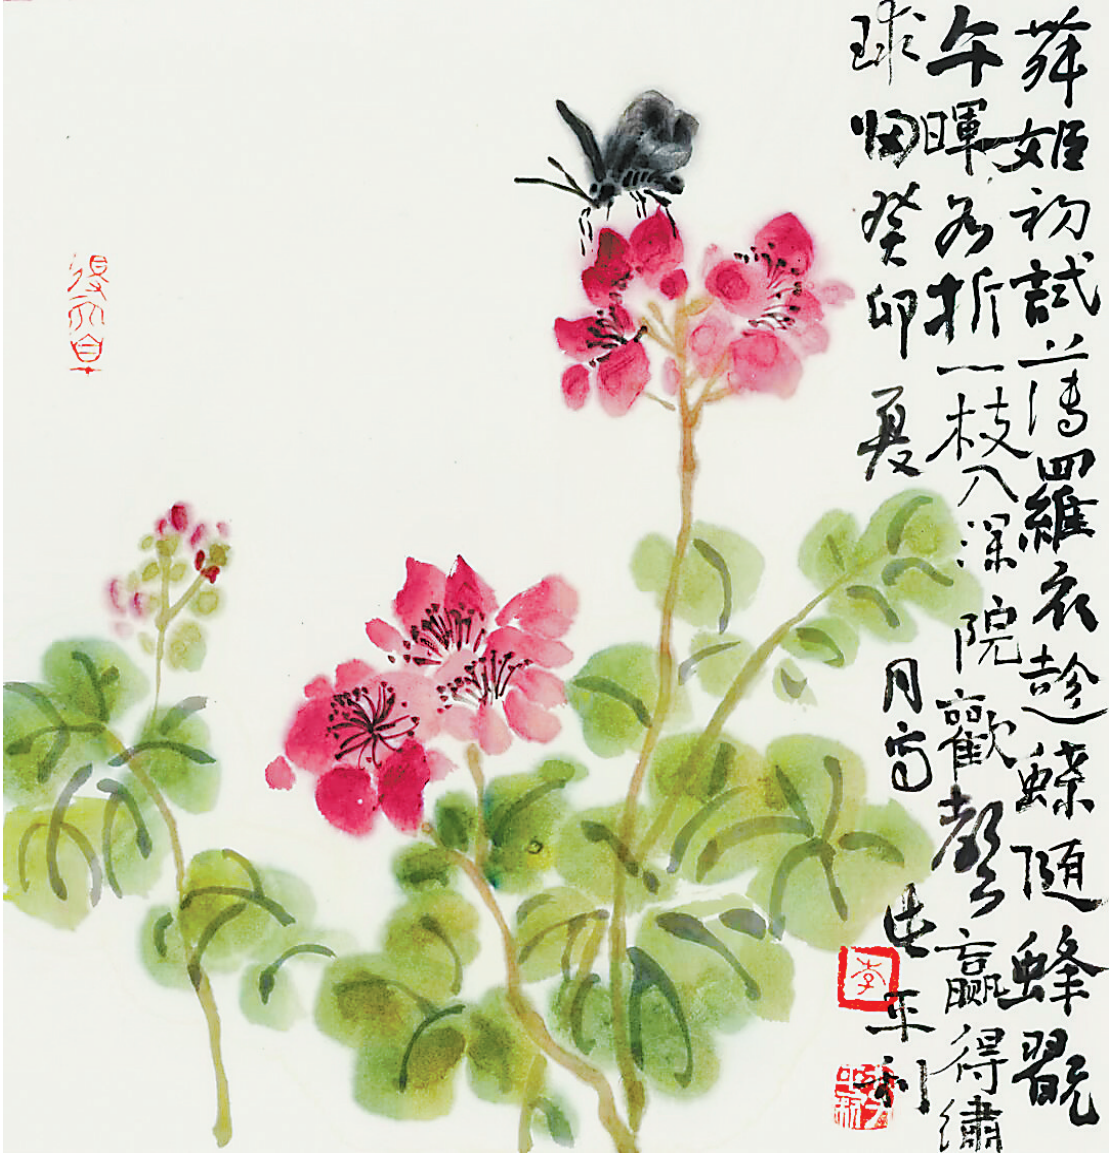 舞姬初試薄羅衣趁蝶隨蜂翫
午暉若折一枝入深院歡聲贏得繡
球归癸卯夏月写平利
李